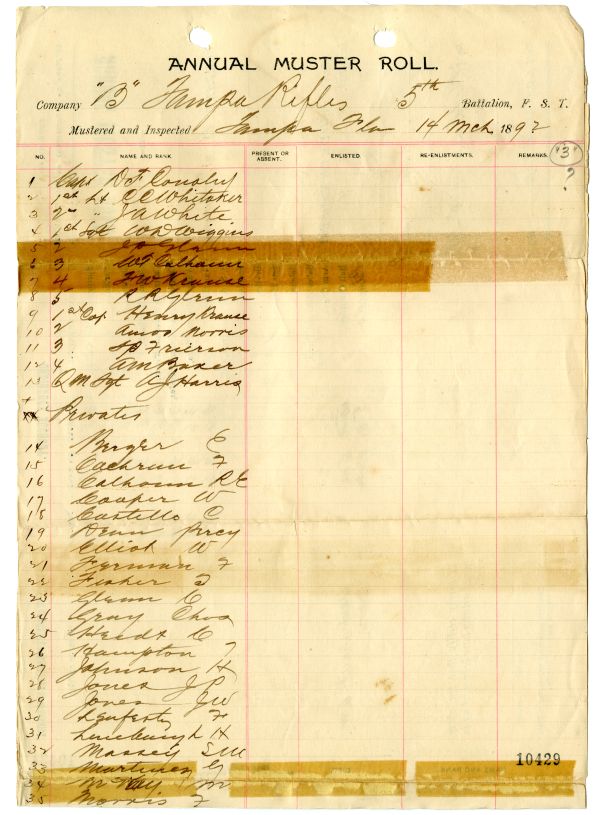 ANNUAL MUSTER ROLL.
Company "B" Tampa Rifles 5th Battalion, F. S. T.
Mustered and Inspected Tampa Fla 14 Mch 1892
NO. NAME AND RANK PRESENT OR ABSENT. ENLISTED. RE-ENLISTMENTS. REMARKS. "3"
?
1 Capt
2 1st Lt CC Whitaker
3 2" " JA White
4 1st Sgt WD Wiggins
5 2
6 3 WT Calhoun
7 4 FW Krause
8 5 RR Glenn
9 1st Cop Henry Krause
10 2 Amos Norris
11 3 SP Frierson
12 4 AM Baker
13 QM Sgt AJ Harris
Privates
14 Berger E
15 Cochrun F
16 Calhoun RE
17 Cooper W
18 Costello C
19 Denn Percy
20 Elliot W
21 Ferman F
22 Fisher
23 Glenn C
24 Gray Chas
25 Hendt C
26 Hampton
27 Johnson H
28 Jones JP
29 Jones JW
30 Lenfesty F
31 H
32 Massey
33 Martinez G
34 McKay M
35 Morris F
10429